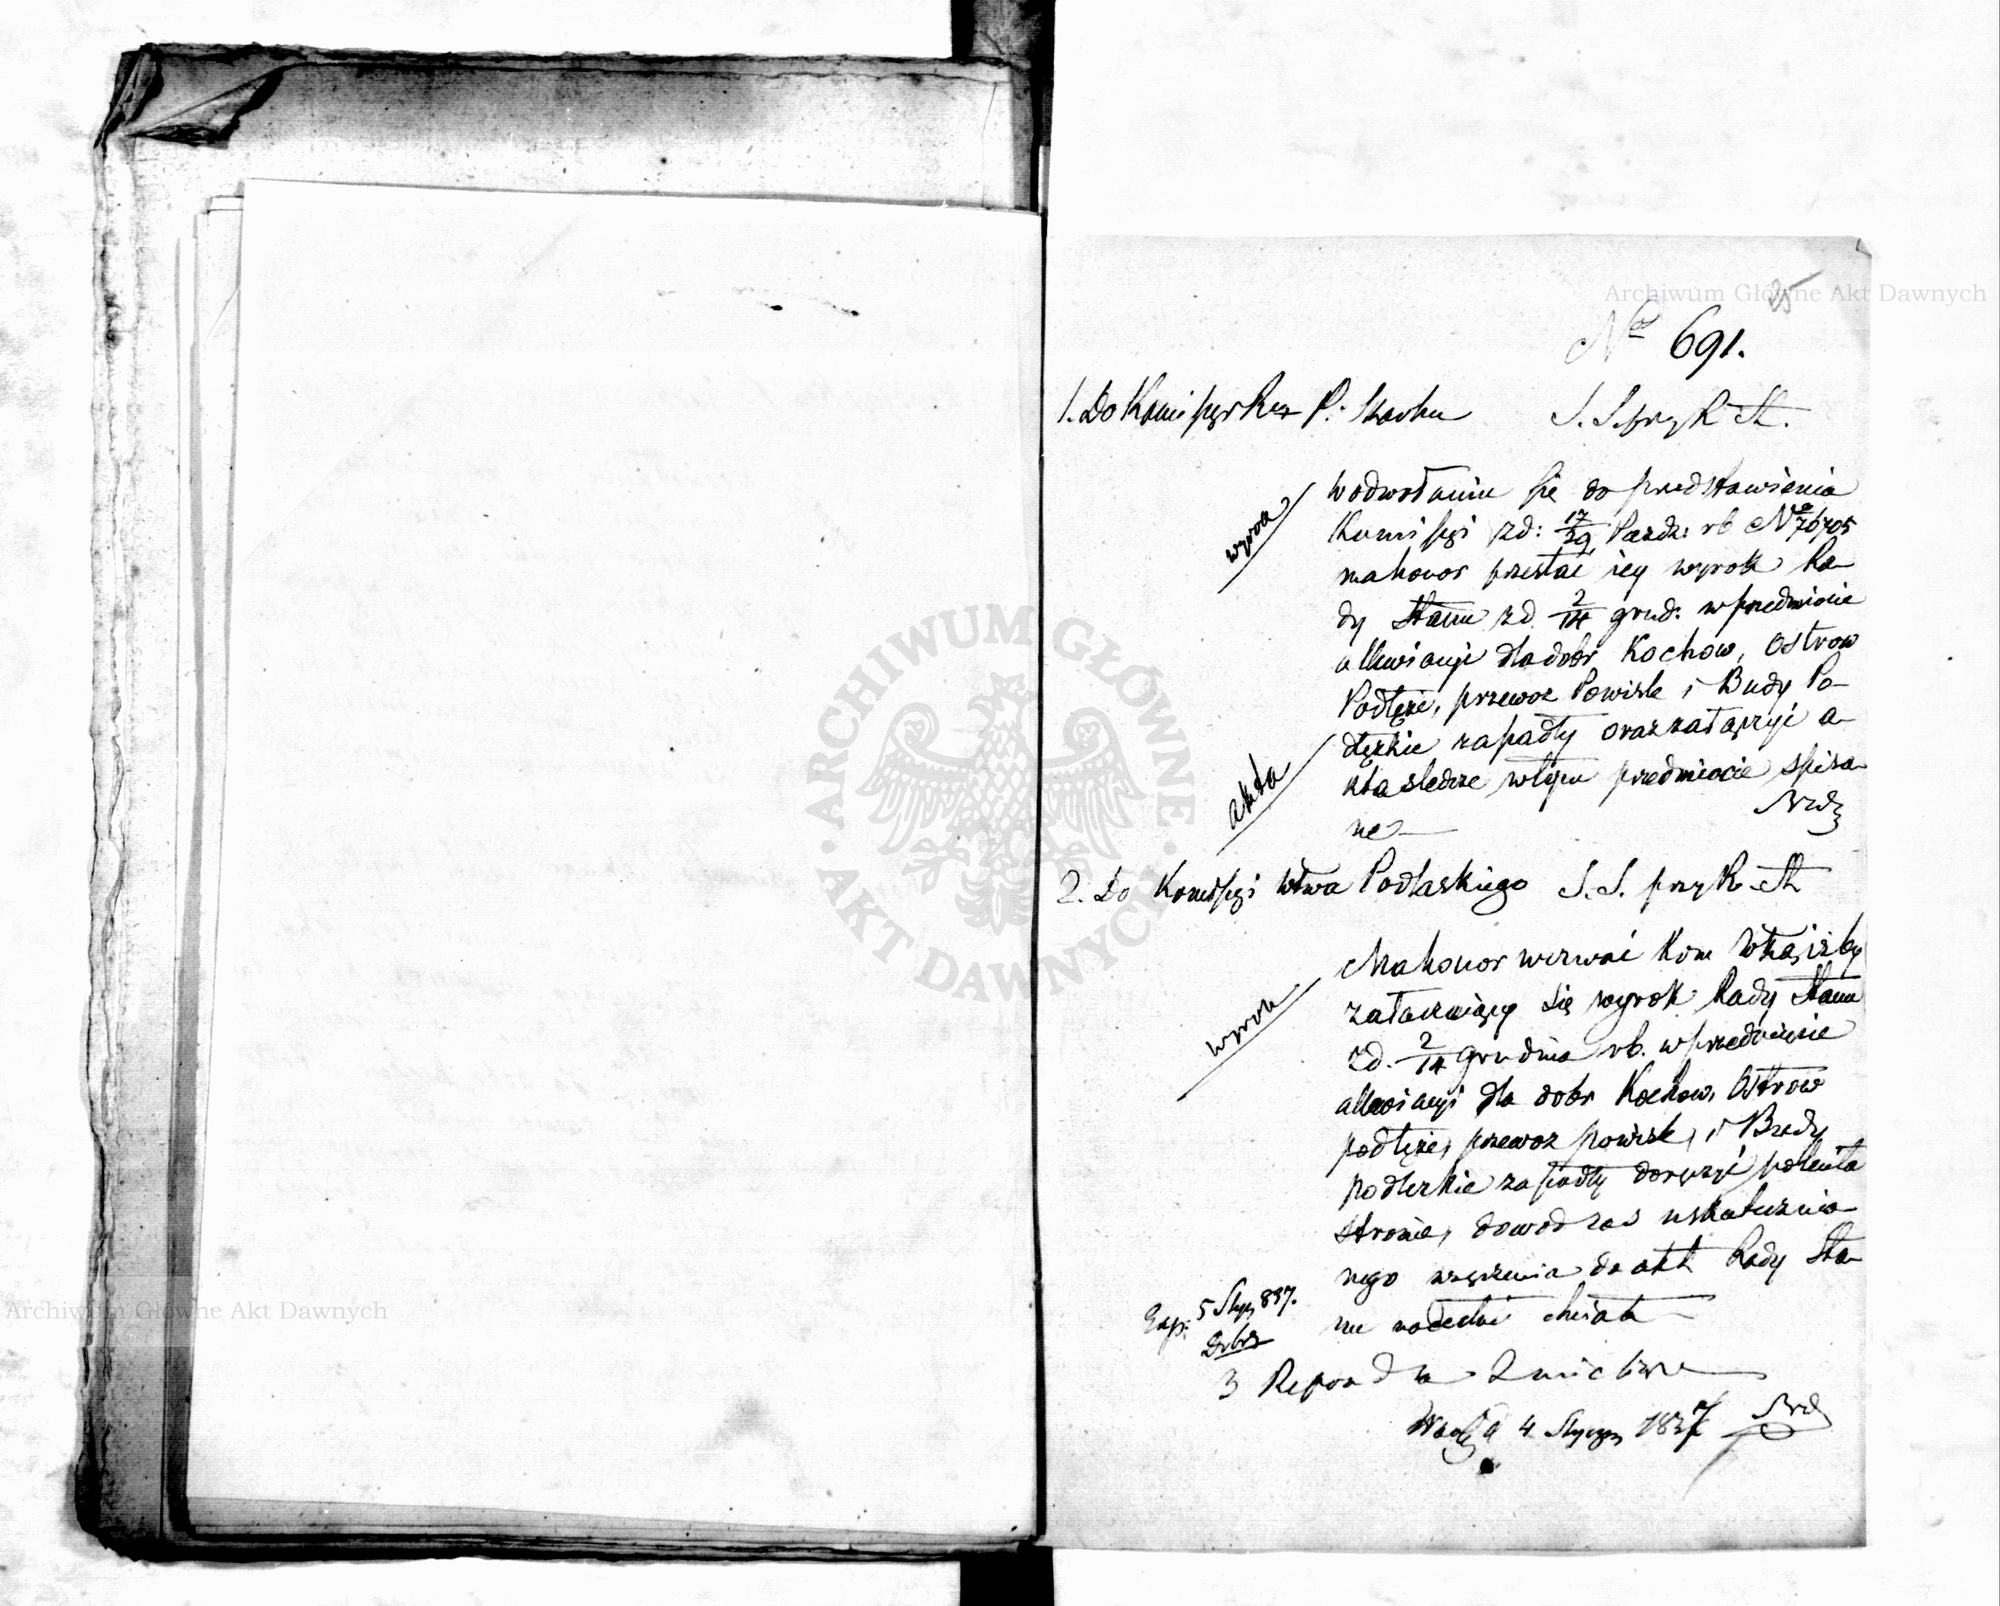 25
No 691.
1. Do Kommissyi Rz. P. i Skarbu S. S. przy R. St.
wyrok
w odwołaniu się do przedstawienia
Kommissyi z d: 17/29 Pazdz: rb No 76705
ma honor przesłać iey wyrok Ra-
dy Stanu z d. 2/14 grud: w przedmiocie
alluwiacyi dla dobr Kochow, Ostrow
Podłęże, przewoz Powiśle i Budy Po-
dłęzkie zapadły oraz załączyć a-
akta
kta śledcze w tym przedmiocie spisa-
ne
2. Do Kommissyi Wtwa Podlaskiego S. S. przy R. St
Ma honor wezwać Kom Wtką, iżby
wyrok
załączaiący się wyrok Rady Stanu
z d. 2/14 grudnia rb. w przedmiocie
alluwiacyi dla dobr Kochow, Ostrow
podłęże, przewoz powiśle, i Budy
podłęzkie zapadły doręczyć
stronie, dowod zaś uskutecznio-
nego wręczenia do akt Rady Sta-
nu nadesłać chciała
Exp: 5 Stycz 837.
3 Repon
4 Stycznia 1837
Archiwum Główne Akt Dawnych
ARCHIWUM GŁÓWNE AKT DAWNYCH
Archiwum Główne Akt Dawnych